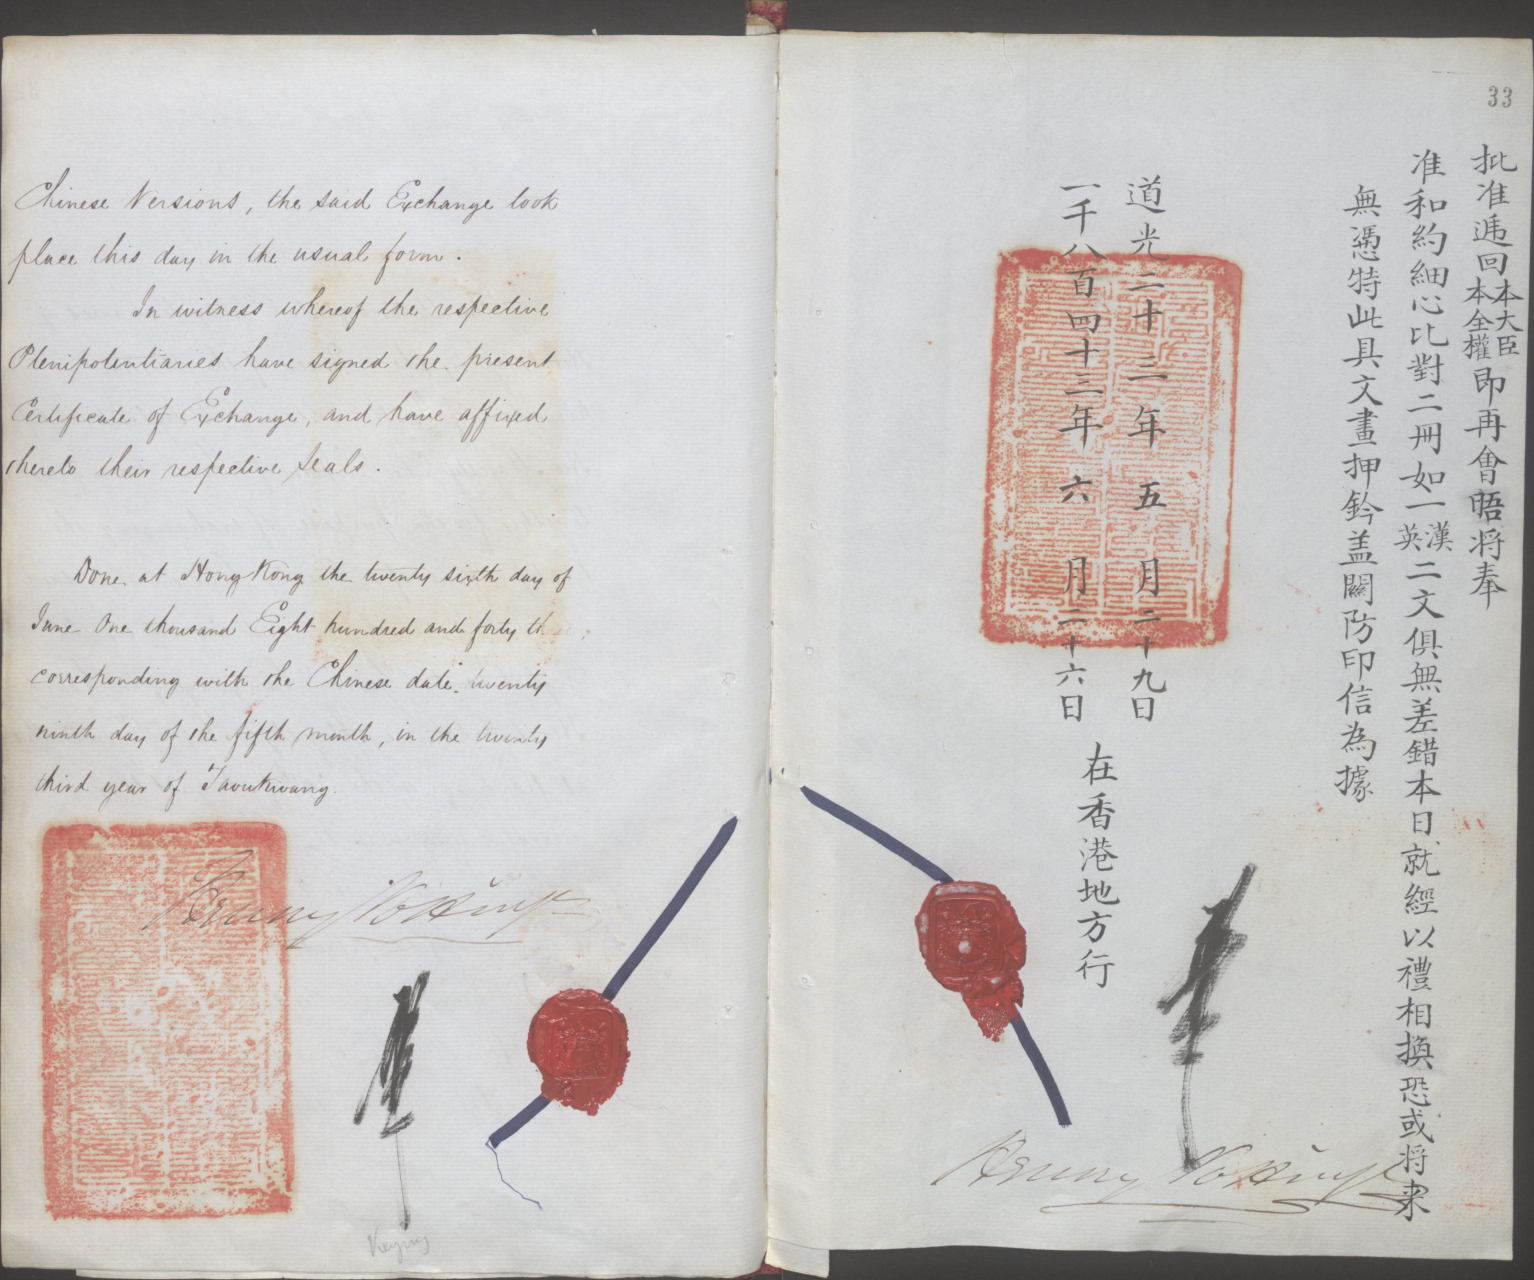 Chinese Versions, the said Exchange took
place this day in the usual form.
In witness whereof the respective
Plenipotentiaries have signed the present
Certificate of Exchange, and have affixed
thereto their respective Seals.
Done at Hong Kong the twenty sixth day of
June One thousand Eight hundred and forty th
corresponding with the Chinese date, twenty
ninth day of the fifth month, in the twenty
third year of Taoukwang.
Henry Pottinger
Keying
33
批准遞回本大臣本全權即再會晤将奉
准和約細心比對二冊如一漢英二文俱無差錯本日就經以禮相換恐或将来
無憑特此具文畫押鈐盖關防印信為據
道光二十三年五月二十九日
一千八百四十三年六月二十六日
在香港地方行
Henry Pottinger